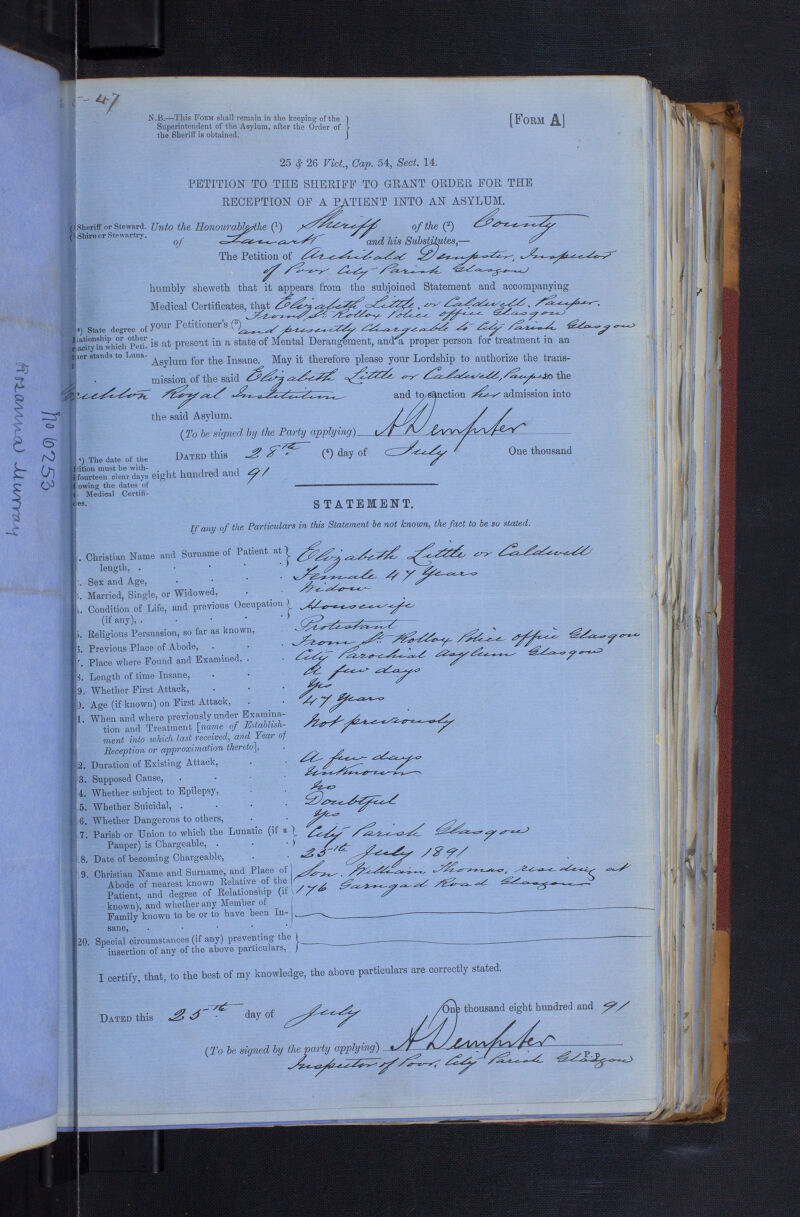 47
N.B.—This Form shall remain in the keeping of the
Superintendent of the Asylum, after the Order of
the Sheriff is obtained.
[Form A]
25 & 26 Vict., Cap. 54, Sect. 14.
PETITION TO THE SHERIFF TO GRANT ORDER FOR THE
RECEPTION OF A PATIENT INTO AN ASYLUM.
Sheriff or Steward.
Shire or Stewartry.
Unto the Honourable the (1) Sheriff of the (2) County
of Lanark and his Substitutes,—
The Petition of Archibald Dempster, Inspector
of Poor City Parish Glasgow
humbly sheweth that it appears from the subjoined Statement and accompanying
Medical Certificates, that Elizabeth Little or Caldwell, Pauper.
From St. Rollox Police office Glasgow
your Petitioner's (3) and presently Chargeable to City Parish Glasgow
(3) State degree of
lationship or other
acity in which Peti-
ner stands to Luna-
is at present in a state of Mental Derangement, and a proper person for treatment in an
Asylum for the Insane. May it therefore please your Lordship to authorize the trans-
mission of the said Elizabeth Little or Caldwell, Pauper to the
Crichton Royal Institution and to sanction her admission into
the said Asylum.
(To be signed by the Party applying) A Dempster
(4) The date of the
tition must be with-
fourteen clear days
owing the dates of
Medical Certifi-
es.
Dated this 28th. (4) day of July One thousand
eight hundred and 91
STATEMENT.
If any of the Particulars in this Statement be not known, the fact to be so stated.
. Christian Name and Surname of Patient at length, . Elizabeth Little or Caldwell
. Sex and Age, Female 47 Years
. Married, Single, or Widowed, Widow
. Condition of Life, and previous Occupation (if any), . Housewife
. Religious Persuasion, so far as known, Protestant
. Previous Place of Abode, From St. Rollox Police office Glasgow
. Place where Found and Examined, City Parochial Asylum Glasgow
8. Length of time Insane, A few days
9. Whether First Attack, Yes
0. Age (if known) on First Attack, 47 Years
1. When and where previously under Examina-
tion and Treatment [name of Establish-
ment into which last received, and Year of
Reception or approximation thereto], Not previously
2. Duration of Existing Attack, A few days
3. Supposed Cause, Unknown
4. Whether subject to Epilepsy, No
5. Whether Suicidal, Doubtful
6. Whether Dangerous to others, Yes
7. Parish or Union to which the Lunatic (if a
Pauper) is Chargeable, City Parish Glasgow
18. Date of becoming Chargeable, 25th July 1891
19. Christian Name and Surname, and Place of
Abode of nearest known Relative of the
Patient, and degree of Relationship (if
known), and whether any Member of
Family known to be or to have been In-
sane,
Son. William Thomas, residing at
176 Garngad Road Glasgow
20. Special circumstances (if any) preventing the
insertion of any of the above particulars,
I certify, that, to the best of my knowledge, the above particulars are correctly stated.
Dated this 25th. day of July One thousand eight hundred and 91
(To be signed by the party applying) A Dempster
P.P.
Inspector of Poor, City Parish Glasgow
No 6253
Rosanna Murray